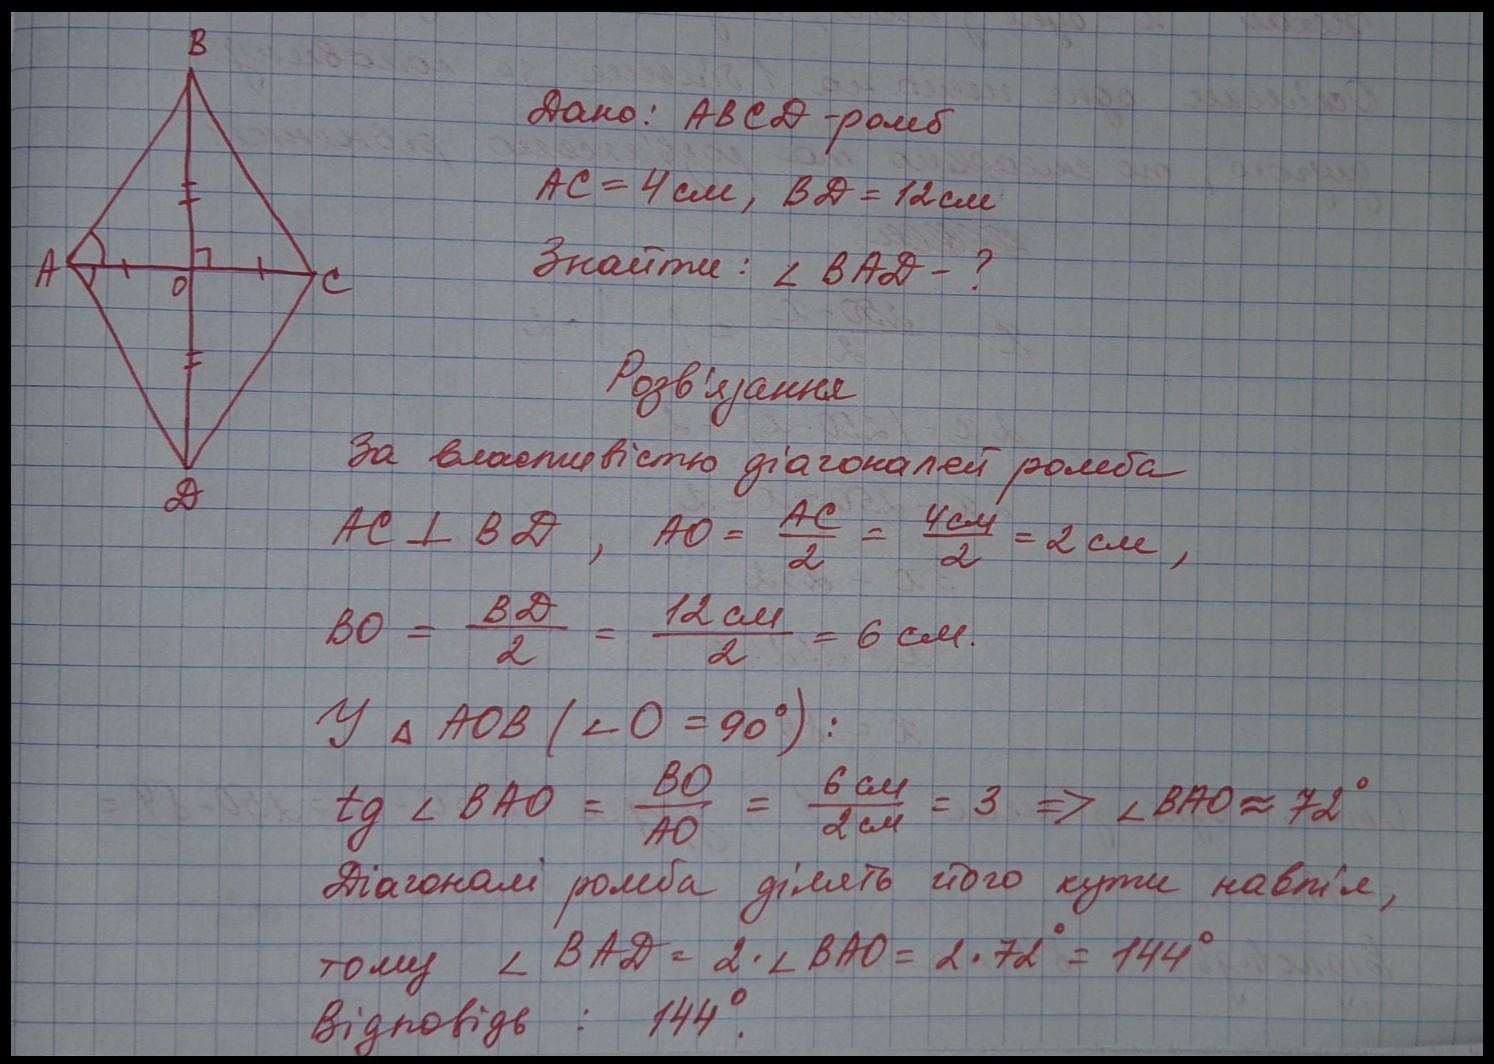 B
A
O
C
D
Дано: ABCD - ромб
AC = 4 см, BD = 12 см
Знайти: ∠ BAD - ?
Розв'язання
За властивістю діагоналей ромба
AC ⊥ BD, AO = AC/2 = 4 см/2 = 2 см,
BO = BD/2 = 12 см/2 = 6 см.
У △ AOB (∠O = 90°):
tg ∠ BAO = BO/AO = 6 см/2 см = 3 => ∠BAO ≈ 72°
Діагоналі ромба ділять його кути навпіл,
тому ∠ BAD = 2·∠ BAO = 2·72° = 144°
Відповідь: 144°.